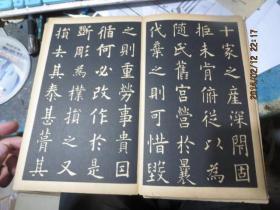 十家之產深閇固
拒未肯俯從以為
随氏舊宮營於曩
代棄之則可惜毀
之則重勞事貴因
循何必改作於是
斲彫為樸損之又
損去其泰甚葺其
2014/02/12 22:17